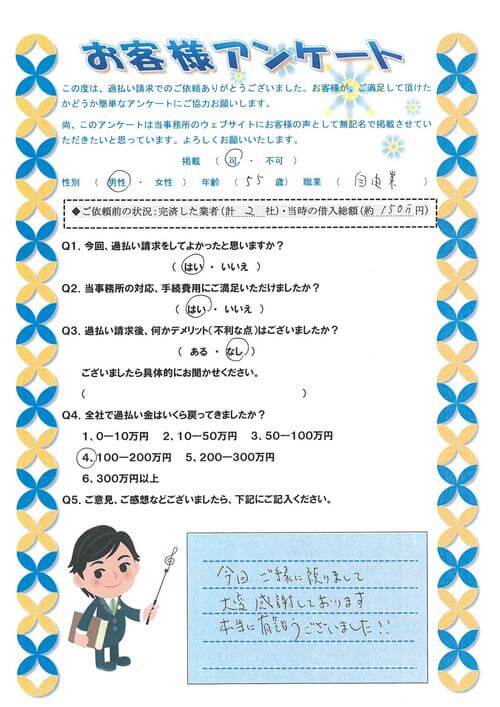 お客様アンケート
この度は、過払い請求でのご依頼ありがとうございました。お客様が、ご満足して頂けた
かどうか簡単なアンケートにご協力お願いします。
尚、このアンケートは当事務所のウェブサイトにお客様の声として無記名で掲載させてい
ただきたいと思っています。よろしくお願いいたします。
掲載 ( 可 ・ 不可 )
性別 ( 男性 ・ 女性 ) 年齢 ( 55 歳) 職業 ( 自由業 )
◆ご依頼前の状況：完済した業者(計 2 社)・当時の借入総額(約 150万円)
Q1. 今回、過払い請求をしてよかったと思いますか？
( はい ・ いいえ )
Q2. 当事務所の対応、手続費用にご満足いただけましたか？
( はい ・ いいえ )
Q3. 過払い請求後、何かデメリット(不利な点)はございましたか？
( ある ・ なし )
ございましたら具体的にお聞かせください。
( )
Q4. 全社で過払い金はいくら戻ってきましたか？
1、0ー10万円 2、10ー50万円 3、50ー100万円
4、100ー200万円 5、200ー300万円
6、300万円以上
Q5. ご意見、ご感想などございましたら、下記にご記入ください。
今回ご縁に限りまして
大変感謝しております
本当に有難うございました!!